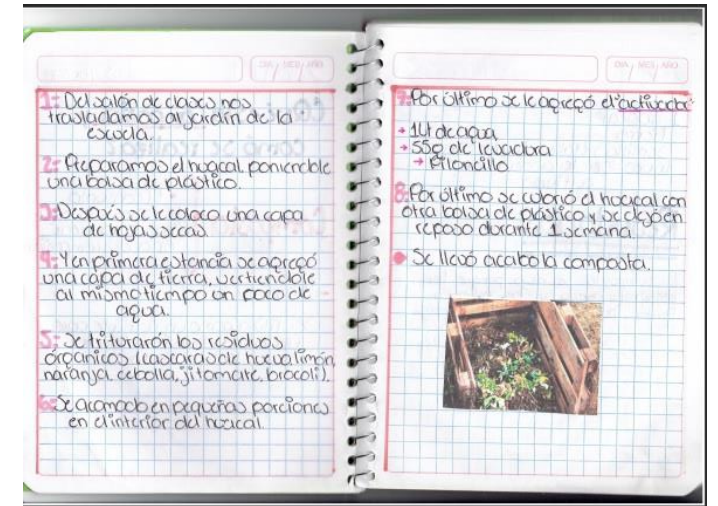 DIA / MES / AÑO
1: Del salón de clases nos
trasladamos al jardín de la
escuela.
2: Preparamos el huacal poniendole
una bolsa de plástico.
3: Después se le coloco una capa
de hojas secas.
4: Y en primera estancia se agregó
una capa de tierra, vertiendole
al mismo tiempo un poco de
agua.
5: Se trituraron los residuos
organicos (cascaras de huevo, limón,
naranja, cebolla, jitomate, brocoli).
6: Se acomodo en pequeñas porciones
en el interior del huacal.
DIA / MES / AÑO
7: Por último se le agregó el "activador"
→ 1Lt de agua
→ 55g de levadura
→ Piloncillo
8: Por último se cubrió el huacal con
otra bolsa de plástico y se dejó en
reposo durante 1 semana.
Se llevó acabo la composta.